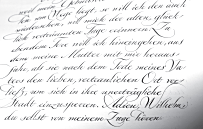 vom Wege liegt, so will ich den auch
wiedersehen, will mich der alten, glück-
lich verträumten Tage erinnern. Zu
ebendem Tore will ich hineingehen, aus
dem meine Mutter mit mir heraus-
fuhr, als sie nach dem Tode meines Va-
ters den lieben, vertraulichen Ort ver-
ließ, um sich in ihre unerträgliche
Stadt einzusperren. Adieu, Wilhelm,
du sollst von meinem Zuge hören